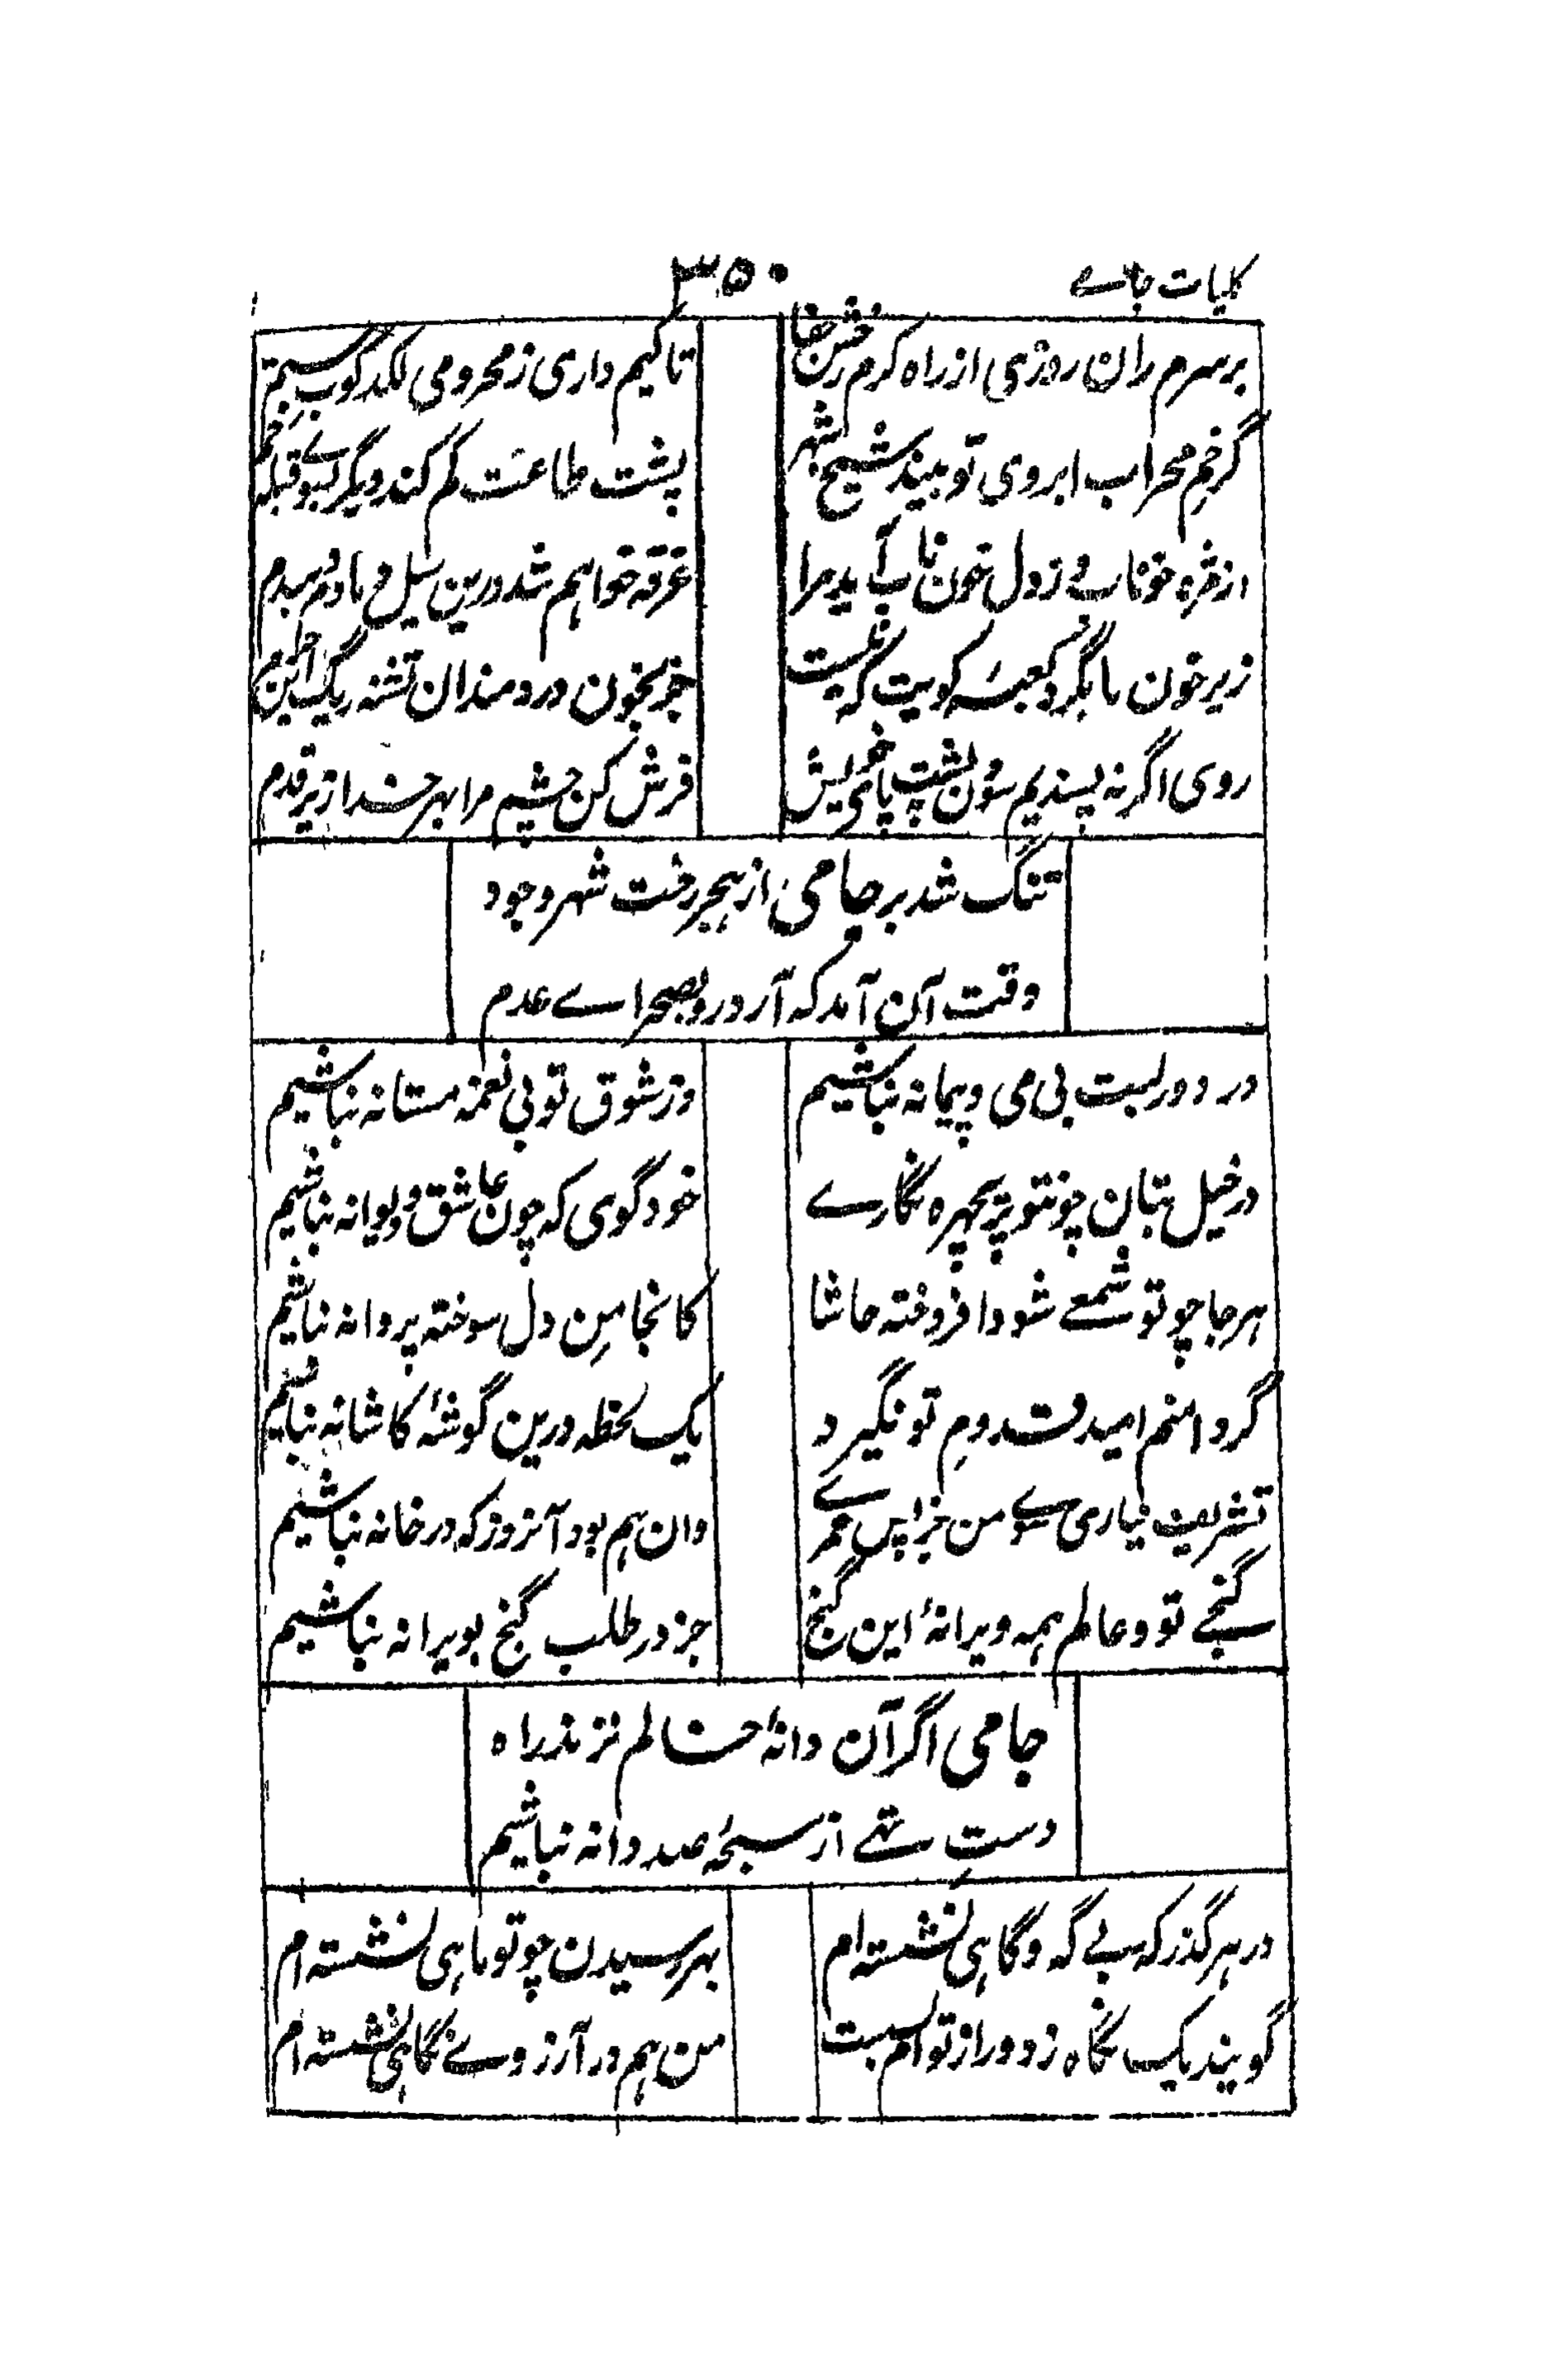 کلیات جامے
۳۵۰
بر سرم ران روزی از راه کرم رخش جفا
تا کیم داری ز محرومی لکدکوب ستم
گر خم محراب ابروی تو بیند شیخ شهر
پشت طاعت کم کند دیگر بسوے قبله خم
از مژه خوناب و ز دل خون ناب آید مرا
غرقه خواهم شد درین سیل دمادم دمبدم
زیر خون ما بگرد کعبهٔ کویت که نیست
جز بخون دردمندان تشنه ریگ این حرم
روی اگر نه پسندیم سودن بپشت پای خویش
فرش کن چشیم مرا بهر خدا زیر قدم
تنگ شد بر جامی از هجر رخت شهر وجود
وقت آن آمد که آرد رو بصحراے عدم
در دور لبت بی می و پیمانه نباشیم
وز شوق تو بی نعرهٔ مستانه نباشیم
در خیل بتان چونتو پریچهره نگارے
خود گوی که چون عاشق و دیوانه نباشیم
هر جا چو تو شمعے شود افروخته حاشا
کانجا من دل سوخته پروانه نباشیم
گر دامنم امید قدوم تو نگیرد
یک لحظه درین گوشهٔ کاشانه نباشیم
تشریف نیاری سوے من جز پس عمرے
وان هم بود آنروز که در خانه نباشیم
گنجے تو و عالم همه ویرانهٔ این گنج
جز در طلب گنج بویرانه نباشیم
جامی اگر آن دانهٔ خالم نزند راه
دست تهے از سبحهٔ صد دانه نباشیم
در هر گذر که بے گه و گاهی نشسته ام
بهر رسیدن چو تو ماهی نشسته ام
گویند یک نگاه ز دور از تو ام بست
من هم در آرزوے نگاهی نشسته ام